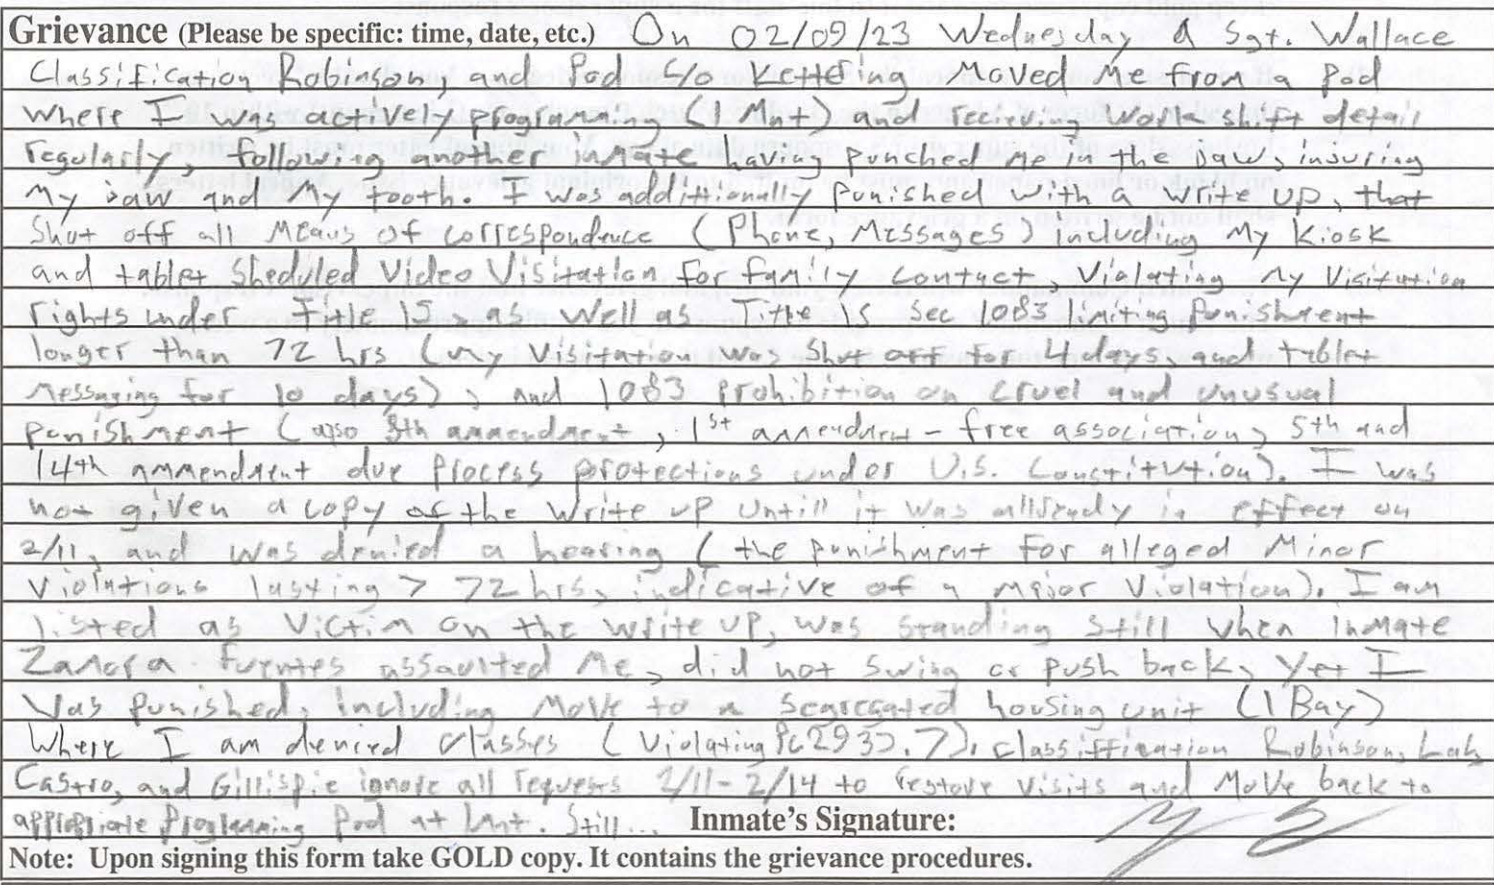 Grievance (Please be specific: time, date, etc.) On 02/09/23 Wednesday Sgt. Wallace
Classification Robinson, and Pod C/o Kettering moved me from a pod
where I was actively programming (1 Mnt) and recieving work shift detail
regularly, following another inmate having punched me in the jaw, injuring
my jaw and my tooth. I was additionally punished with a write up, that
shut off all means of correspondence (Phone, Messages) including my kiosk
and tablet sheduled Video Visitation for family contact, violating my visitation
rights under Title 15 as well as Title 15 sec 1083 limiting punishment
longer than 72 hrs (my visitation was shut off for 4 days and tablet
messaging for 10 days), and 1083 prohibition on cruel and unusual
punishment (also 8th ammendment, 1st amendment - free association, 5th and
14th ammendment due process protections under U.S. Constitution). I was
not given a copy of the write up untill it was allready in effect on
2/11, and was denied a hearing (the punishment for alleged minor
violations lasting > 72 hrs, indicative of a major violation). I am
listed as victim on the write up, was standing still when inmate
Zamora Fuentes assaulted me, did not swing or push back, yet I
was punished, including move to a segregated housing unit (1 Bay)
where I am denied classes (violating Pc 2933.7). Classiffication Robinson,
Castro, and Gillispie ignore all requests 2/11-2/14 to restore visits and move back to
appropriate Programming Pod at 1mnt. Still... Inmate's Signature:
Note: Upon signing this form take GOLD copy. It contains the grievance procedures.